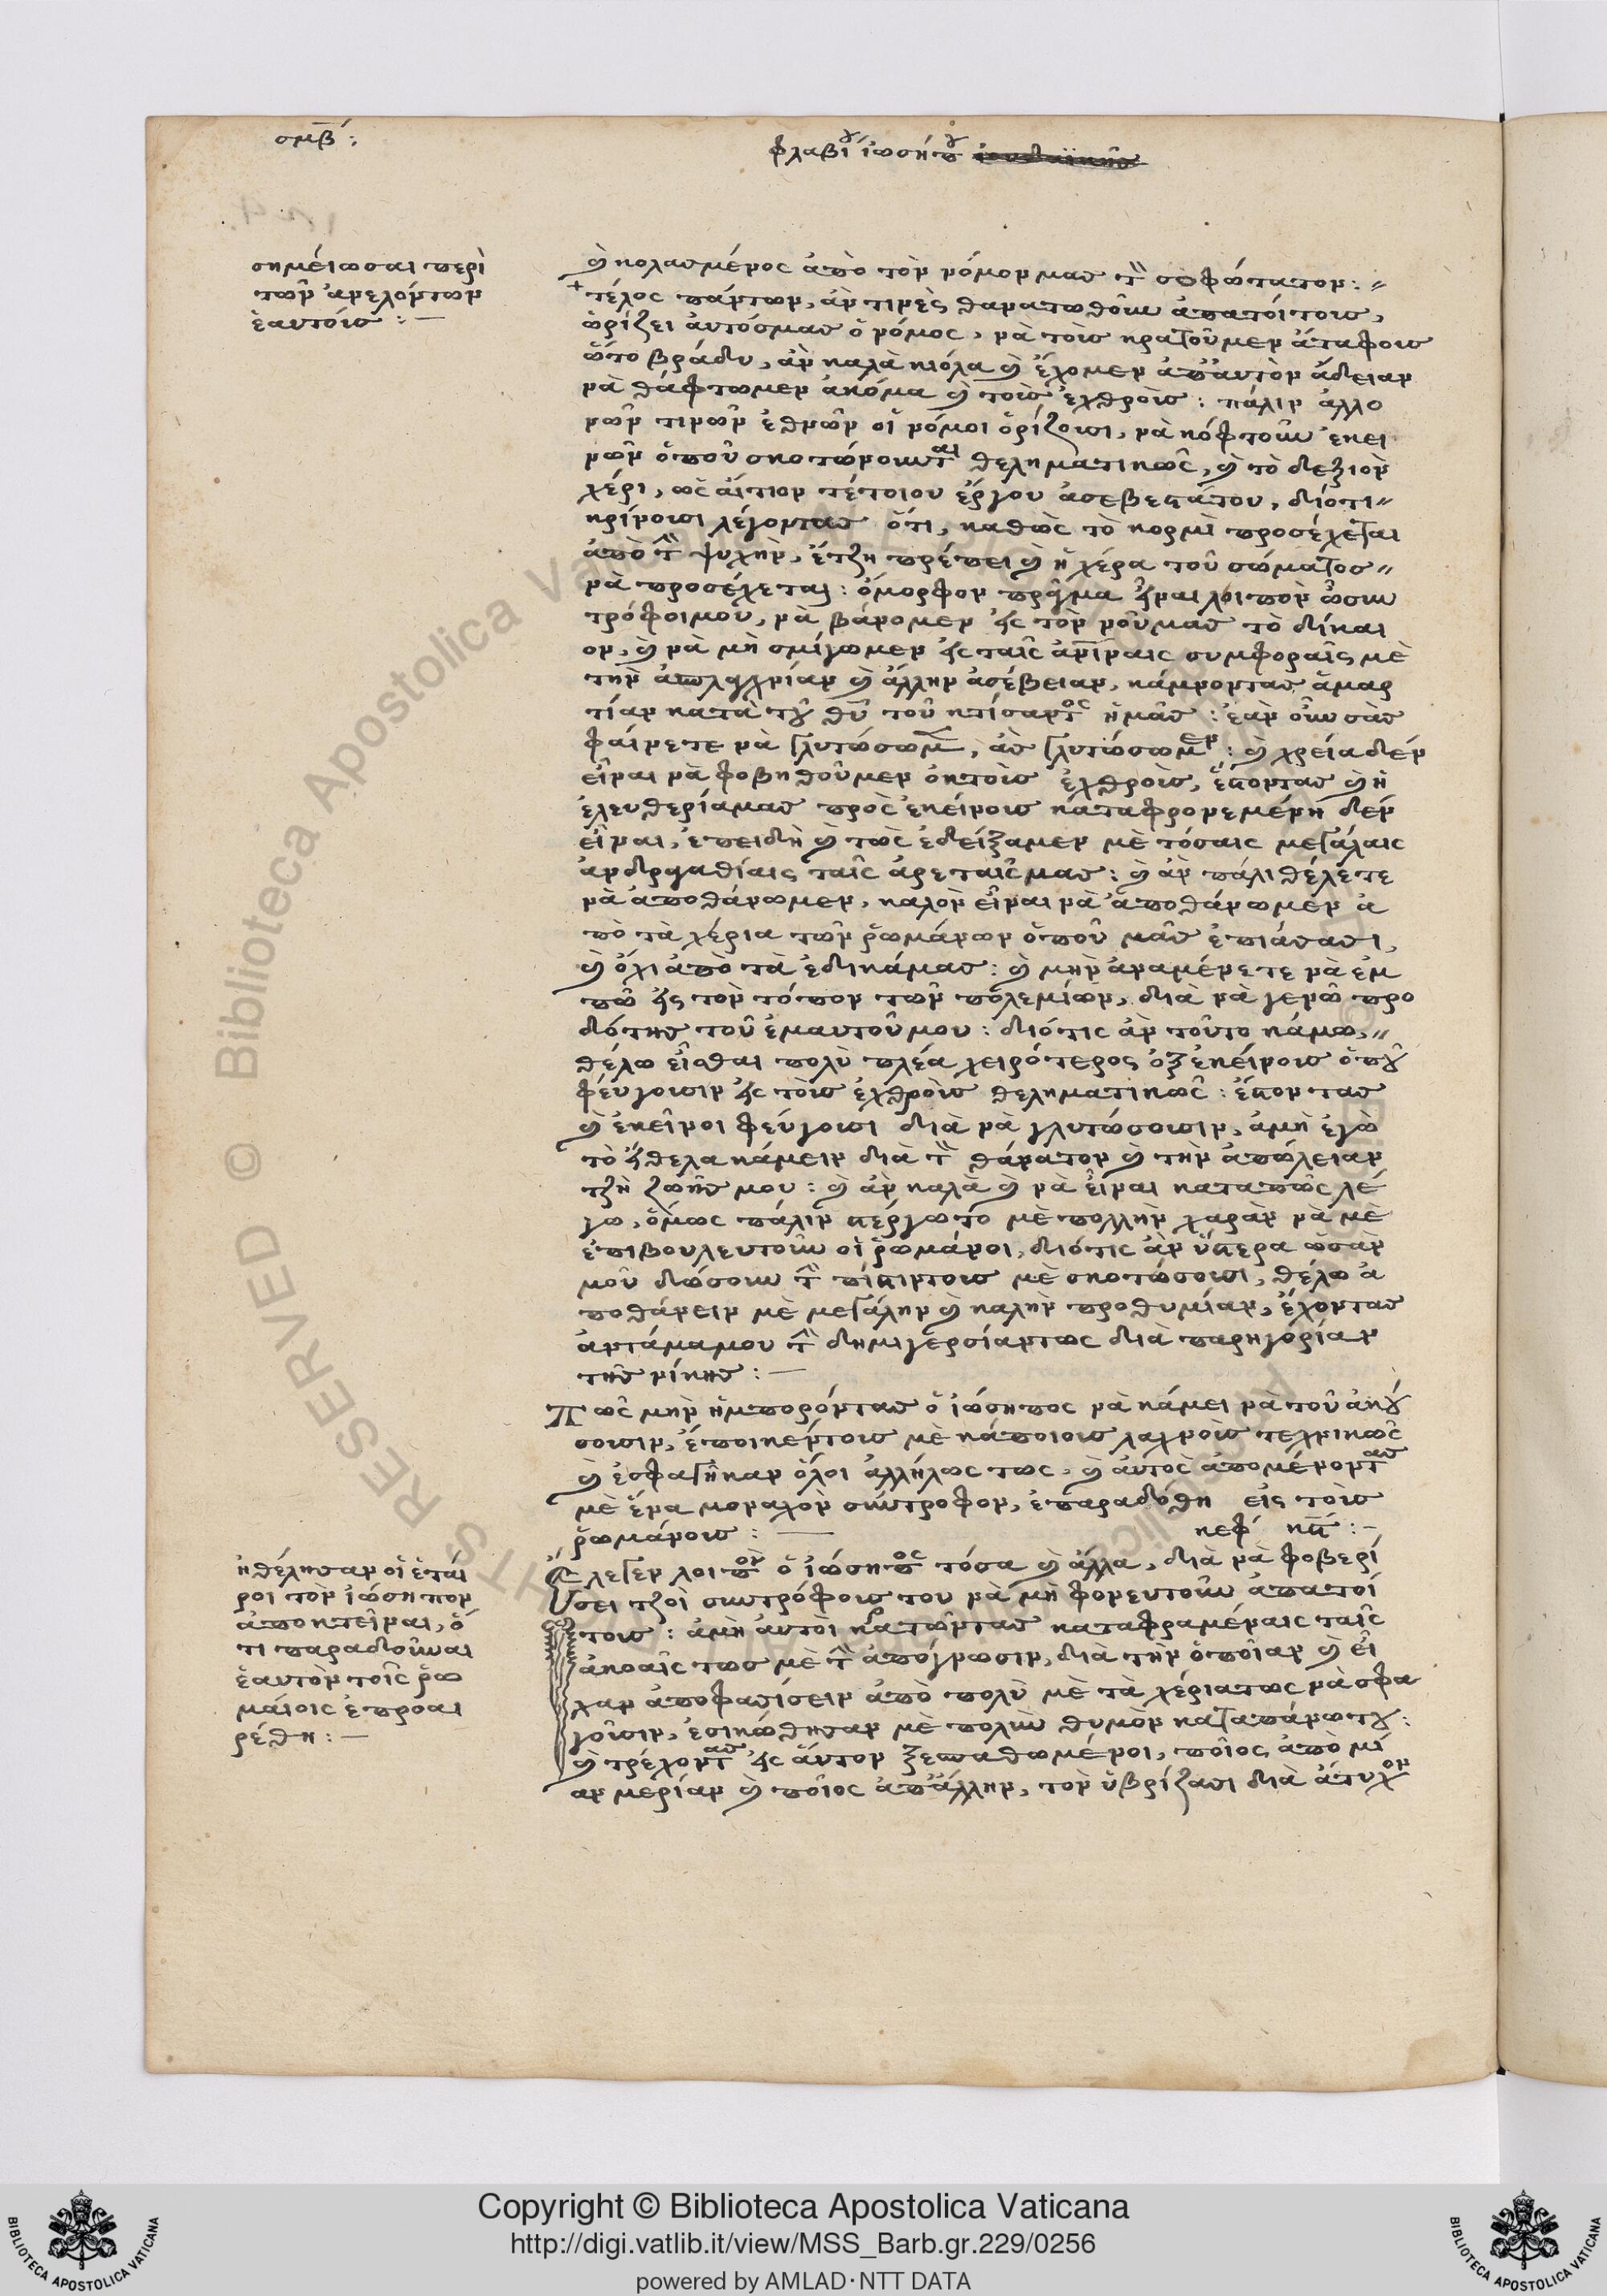 σμβ´:
φλαβίου ἰωσήπου ἰουδαϊκῆς
σημείωσαι περὶ
τῶν ἀνελόντων
ἑαυτούς :—
καὶ κολασμένος ἀπὸ τὸν νόμον μας τὸν σοφώτατον:
+ τέλος πάντων, ἂν τινὲς θανατωθοῦν ἀπατοίτους,
ὁρίζει αὐτόςμας ὁ νόμος, νὰ τοὺς κρατοῦμεν ἀτάφους
ὥςτο βράδυ, ἂν καλὰ κιόλα καὶ ἔχομεν ἀπαὐτὸν ἄδειαν
νὰ θάφτωμεν ἀκόμα καὶ τοὺς ἐχθρούς: πάλιν ἀλλο
νῶν τινῶν ἐθνῶν οἱ νόμοι ὁρίζουσι, νὰ κόφτουν ἐκει
νῶν ὁποῦ σκοτώνουνται θεληματικῶς, καὶ τὸ δεξιὸν
χέρι, ὡς αἴτιον τέτοιου ἔργου ἀσεβεστάτου, διότι
κρίνουσι λέγοντας ὅτι, καθὼς τὸ κορμὶ προσέχεται
ἀπὸ τὴν ψυχὴν, ἔτζη πρέπει καὶ ἡ χέρα τοῦ σώματος
νὰ προσέχεται: ὄμορφον πρᾶγμα εἶναι λοιπὸν ὦ συν
τρόφοιμου, νὰ βάνομεν εἰς τὸν νοῦμας τὸ δίκαι
ον, καὶ νὰ μὴ σμίγωμεν εἰς ταῖς ἀνθρωπίναις συμφοραῖς μὲ
τὴν καὶ ἄλλην ἀσέβειαν, κάμνοντας ἁμαρ
τίαν κατὰ τοῦ θεοῦ τοῦ κτίσαντος ἡμᾶς: ἐὰν οὖν σᾶς
φαίνετε νὰ γλυτώσωμεν, ἂς γλυτώσωμεν: καὶ χρεία δέν
εἶναι νὰ φοβηθοῦμεν ὀκτοὺς ἐχθρούς, ἔστοντας καὶ ἡ
ἐλευθερίαμας πρὸς ἐκείνους καταφρονεμένη δέν
εἶναι, ἐπειδὴ καὶ τὼς ἐδείξαμεν μὲ τόσαις μεγάλαις
ἀνδραγαθίαις ταῖς ἀρεταῖςμας: καὶ ἂν πάλι θέλετε
νὰ ἀποθάνωμεν, καλὸν εἶναι νὰ ἀποθάνωμεν ἀ
πὸ τὰ χέρια τῶν ῥωμάνων ὁποῦ μᾶς ἐπιάσασι,
καὶ ὄχι ἀπὸ τὰ ἐδικάμας: καὶ μὴν ἀναμένετε νὰ ἐμ
πῶ εἰς τὸν τόπον τῶν πολεμίων, διὰ νὰ γενῶ προ
δότης τοῦ ἐμαυτοῦμου: διότις ἂν τοῦτο κάμω,
θέλω εἶσθαι πολὺ πλέα χειρότερος ὀξἐκείνους ὁποῦ
φεύγουσιν εἰς τοὺς ἐχθροὺς θεληματικῶς: ἔστοντας
καὶ ἐκεῖνοι φεύγουσι διὰ νὰ γλυτώσουσιν, ἀμὴ ἐγὼ
τὸ ἤθελα κάμειν διὰ τὸν θάνατον καὶ τὴν ἀπώλειαν
τζῆ ζωῆς μου: καὶ ἂν καλὰ καὶ νὰ εἶναι καταπῶς λέ
γω, ὅμως πάλιν στέργωτο μὲ πολλὴν χαρὰν νὰ μὲ
ἐπιβουλευτοῦν οἱ ῥωμάνοι, διότις ἂν ὕστερα ὡσὰν
μοῦ δώσουν τὴν πίστιντους μὲ σκοτώσουσι, θέλω ἀ
ποθάνειν μὲ μεγάλην καὶ καλὴν προθυμίαν, ἔχοντας
ἀντάμαμου τὴν δημιγερσίαντως διὰ παρηγορίαν
τῆς νίκης :—
Πῶς μὴν ἡμπορόντας ὁ ἰώσηπος νὰ κάμει νὰ τοῦ ἀκού
σουσιν, ἔποικέντους μὲ κάποιους λαχνοὺς τεχνικῶς
καὶ ἐσφαγῆκαν ὅλοι ἀλλήλως τως, καὶ αὐτὸς ἀπομένοντας
μὲ ἕνα μοναχὸν σύντροφον, ἐπαραδόθη εἰς τοὺς
ῥωμάνους :— κεφ κστ :—
ἠθέλησαν οἱ ἑταί
ροι τὸν ἰώσηπον
ἀποκτεῖναι, ὅ
τι παραδοῦναι
ἑαυτὸν τοῖς ῥω
μαίοις ἐπροαι
ρέθη :—
Ἔλεγεν λοιπὸν ὁ ἰώσηπος τόσα καὶ ἄλλα, διὰ νὰ φοβερί
σει τζοὶ συντρόφους του νὰ μὴ φονευτοῦν ἀπατοί
τους: ἀμὴ αὐτοὶ κρατῶντας καταφραμέναις ταῖς
ἀκοαῖς τως μὲ τὴν ἀπόγνωσιν, διὰ τὴν ὁποῖαν καὶ εἶ
χαν ἀποφασίσειν ἀπὸ πολὺ μὲ τὰ χέριατως νὰ σφα
γοῦσιν, ἐσικώθησαν μὲ πολὺν θυμὸν καταπάνωτου:
καὶ τρέχοντας εἰς αὖτον ξεσπαθωμένοι, ποῖος ἀπὸ μί
αν μερίαν καὶ ποῖος ἀπἄλλην, τὸν ὑβρίζασι διὰ ἄτυχον
Copyright © Biblioteca Apostolica Vaticana
http://digi.vatlib.it/view/MSS_Barb.gr.229/0256
powered by AMLAD·NTT DATA